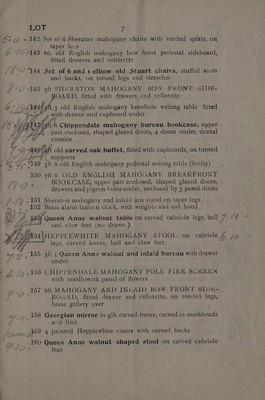 LOT
7
142 Set of 6 Sheraton mahogany chairs, with reeded splats, on
taper legs
143 6ft old English mahogany bow front pedestal sideboard,
fitted drawers and cellarette
144 Set of 6 and 1 elbow old Stuart chairs, stuffed seats
and backs, on turned legs and stretcher
145 5ft SHERATON MAHOGANY BOW FRONT SIDE-
BOARD, fitted with drawers, and cellarette
146 old English mahogany kneehole writing table fitted
with drawer and cupboard under
Chippendale mahogany bureau bookcase, upper
part enclosed, shaped glazed doors, 4 doors under, dental
cornice
old carved oak buffet, fitted with cupboards, on turned
supports
149 5ft 6 old English mahogany pedestal writing table (faulty)
150 7ft 6 OLD ENGLISH MAHOGANY BREAKFRONT
BOOKCASE, upper part enclosed, shaped glazed doors,
drawers and pigeon holes under, enclosed by 3 panel doors
151 Sheraton mahogany and inlaid urn stand on taper legs
152 Brass alarm lantern clock, with weights and oak hood
153 Queen Anne walnut table on carved cabriole legs, ball
and claw feet (no drawer)
154 HEPPLEWHITE MAHOGANY STOOL, on cabriole
legs, carved knees, ball and claw feet
155 3ft 5 Queen Anne walnut and inlaid bureau with drawer
under
156 CHIPPENDALE MAHOGANY POLE FIRE SCREEN
with needlework panel of flowers
157 6ft MAHOGANY AND INLAID BOW FRONT SIDE-
BOARD, fitted drawer and cellarette, on reeded legs,
brass gallery over
158 Georgian mirror in gilt carved frame, carved as maskheads
and fruit
159 4 painted Hepplewhite chairs with carved backs
160 Queen Anne walnut shaped stool on carved cabriole
legs